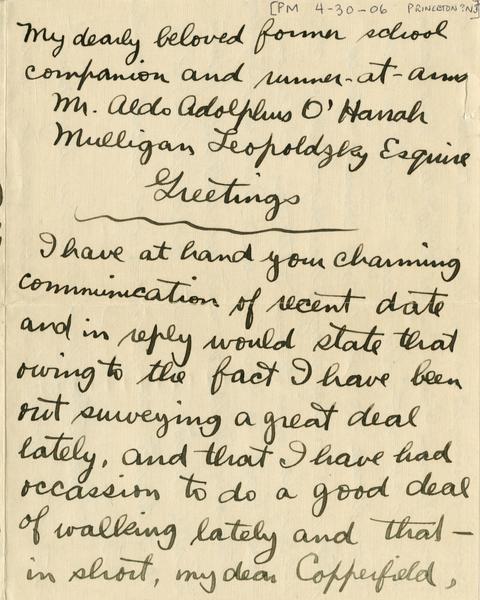 [PM 4-30-06 PRINCETON? NJ]
My dearly beloved former school
companion and runner-at-arms
Mr. Aldo Adolphus O'Harrah
Mulligan Leopoldzky Esquire
Greetings
I have at hand your charming
communication of recent date
and in reply would state that
owing to the fact I have been
out surveying a great deal
lately, and that I have had
occassion to do a good deal
of walking lately and that—
in short, my dear Copperfield,